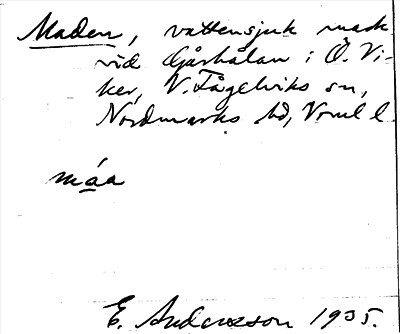 Maden, vattensjuk mark
vid Gårhålan i Ö. Vi-
ker, V. Fågelviks sn,
Nordmarks hd, Vrml l.
máa
E. Andersson 1935.